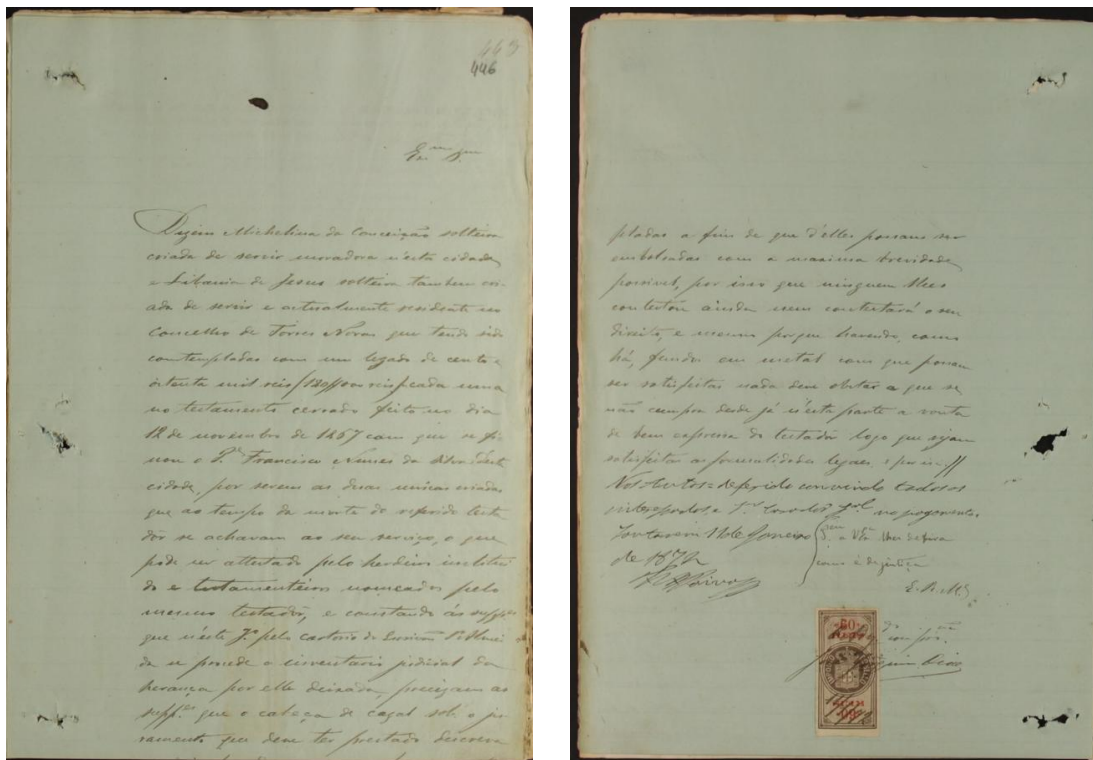 446
Dizem Michelina da Conceição solteira
criada de servir moradora n'esta cidade
e Libania de Jesus solteira tambem cri-
ada de servir e actualmente residente no
Concelho de Torres Novas que tendo sido
contempladas com um legado de cento e
oitenta mil reis cada uma
no testamento cerrado feito no dia
12 de novembro de 1867 com que se fi-
nou o Francisco Nunes da d'esta
cidade, por serem as duas unicas criadas
que ao tempo da morte do referido testa
dôr se achavam ao seu serviço, o que
pode ser attestado pelo herdeiro institui
do e testamenteiros nomeados pelo
mesmo testador, e constando ás supp.es
que n'este J.º pelo cartorio do Escrivão
da se procede a inventario judicial da
herança por elle deixada, precizam as
supp.es que o cabeça de cazal sob o ju-
ramento que deve ter prestado descreva
ptadas a fim de que d'elles possam ser
embolçadas com a maxima brevidade
possivel, por isso que ninguem lhes
contestou ainda nem contestará o seu
direito, e mesmo porque havendo, como
há, fundos em metal com que possam
ser satisfeitas nada deve obstar a que se
não cumpra desde já n'esta parte a vonta
de bem expressa do testador logo que sejam
satisfeitas as formalidades legaes, e por isso
Nos autos = deferido convindo todos os
interessados e Curador no pagamento.
Santarem de Janeiro
de 1872
P. a V.Ex.ª lhes defira
como é de justiça
E. R. M.